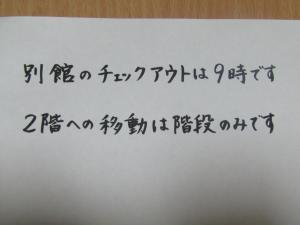 別館のチェックアウトは9時です
2階への移動は階段のみです